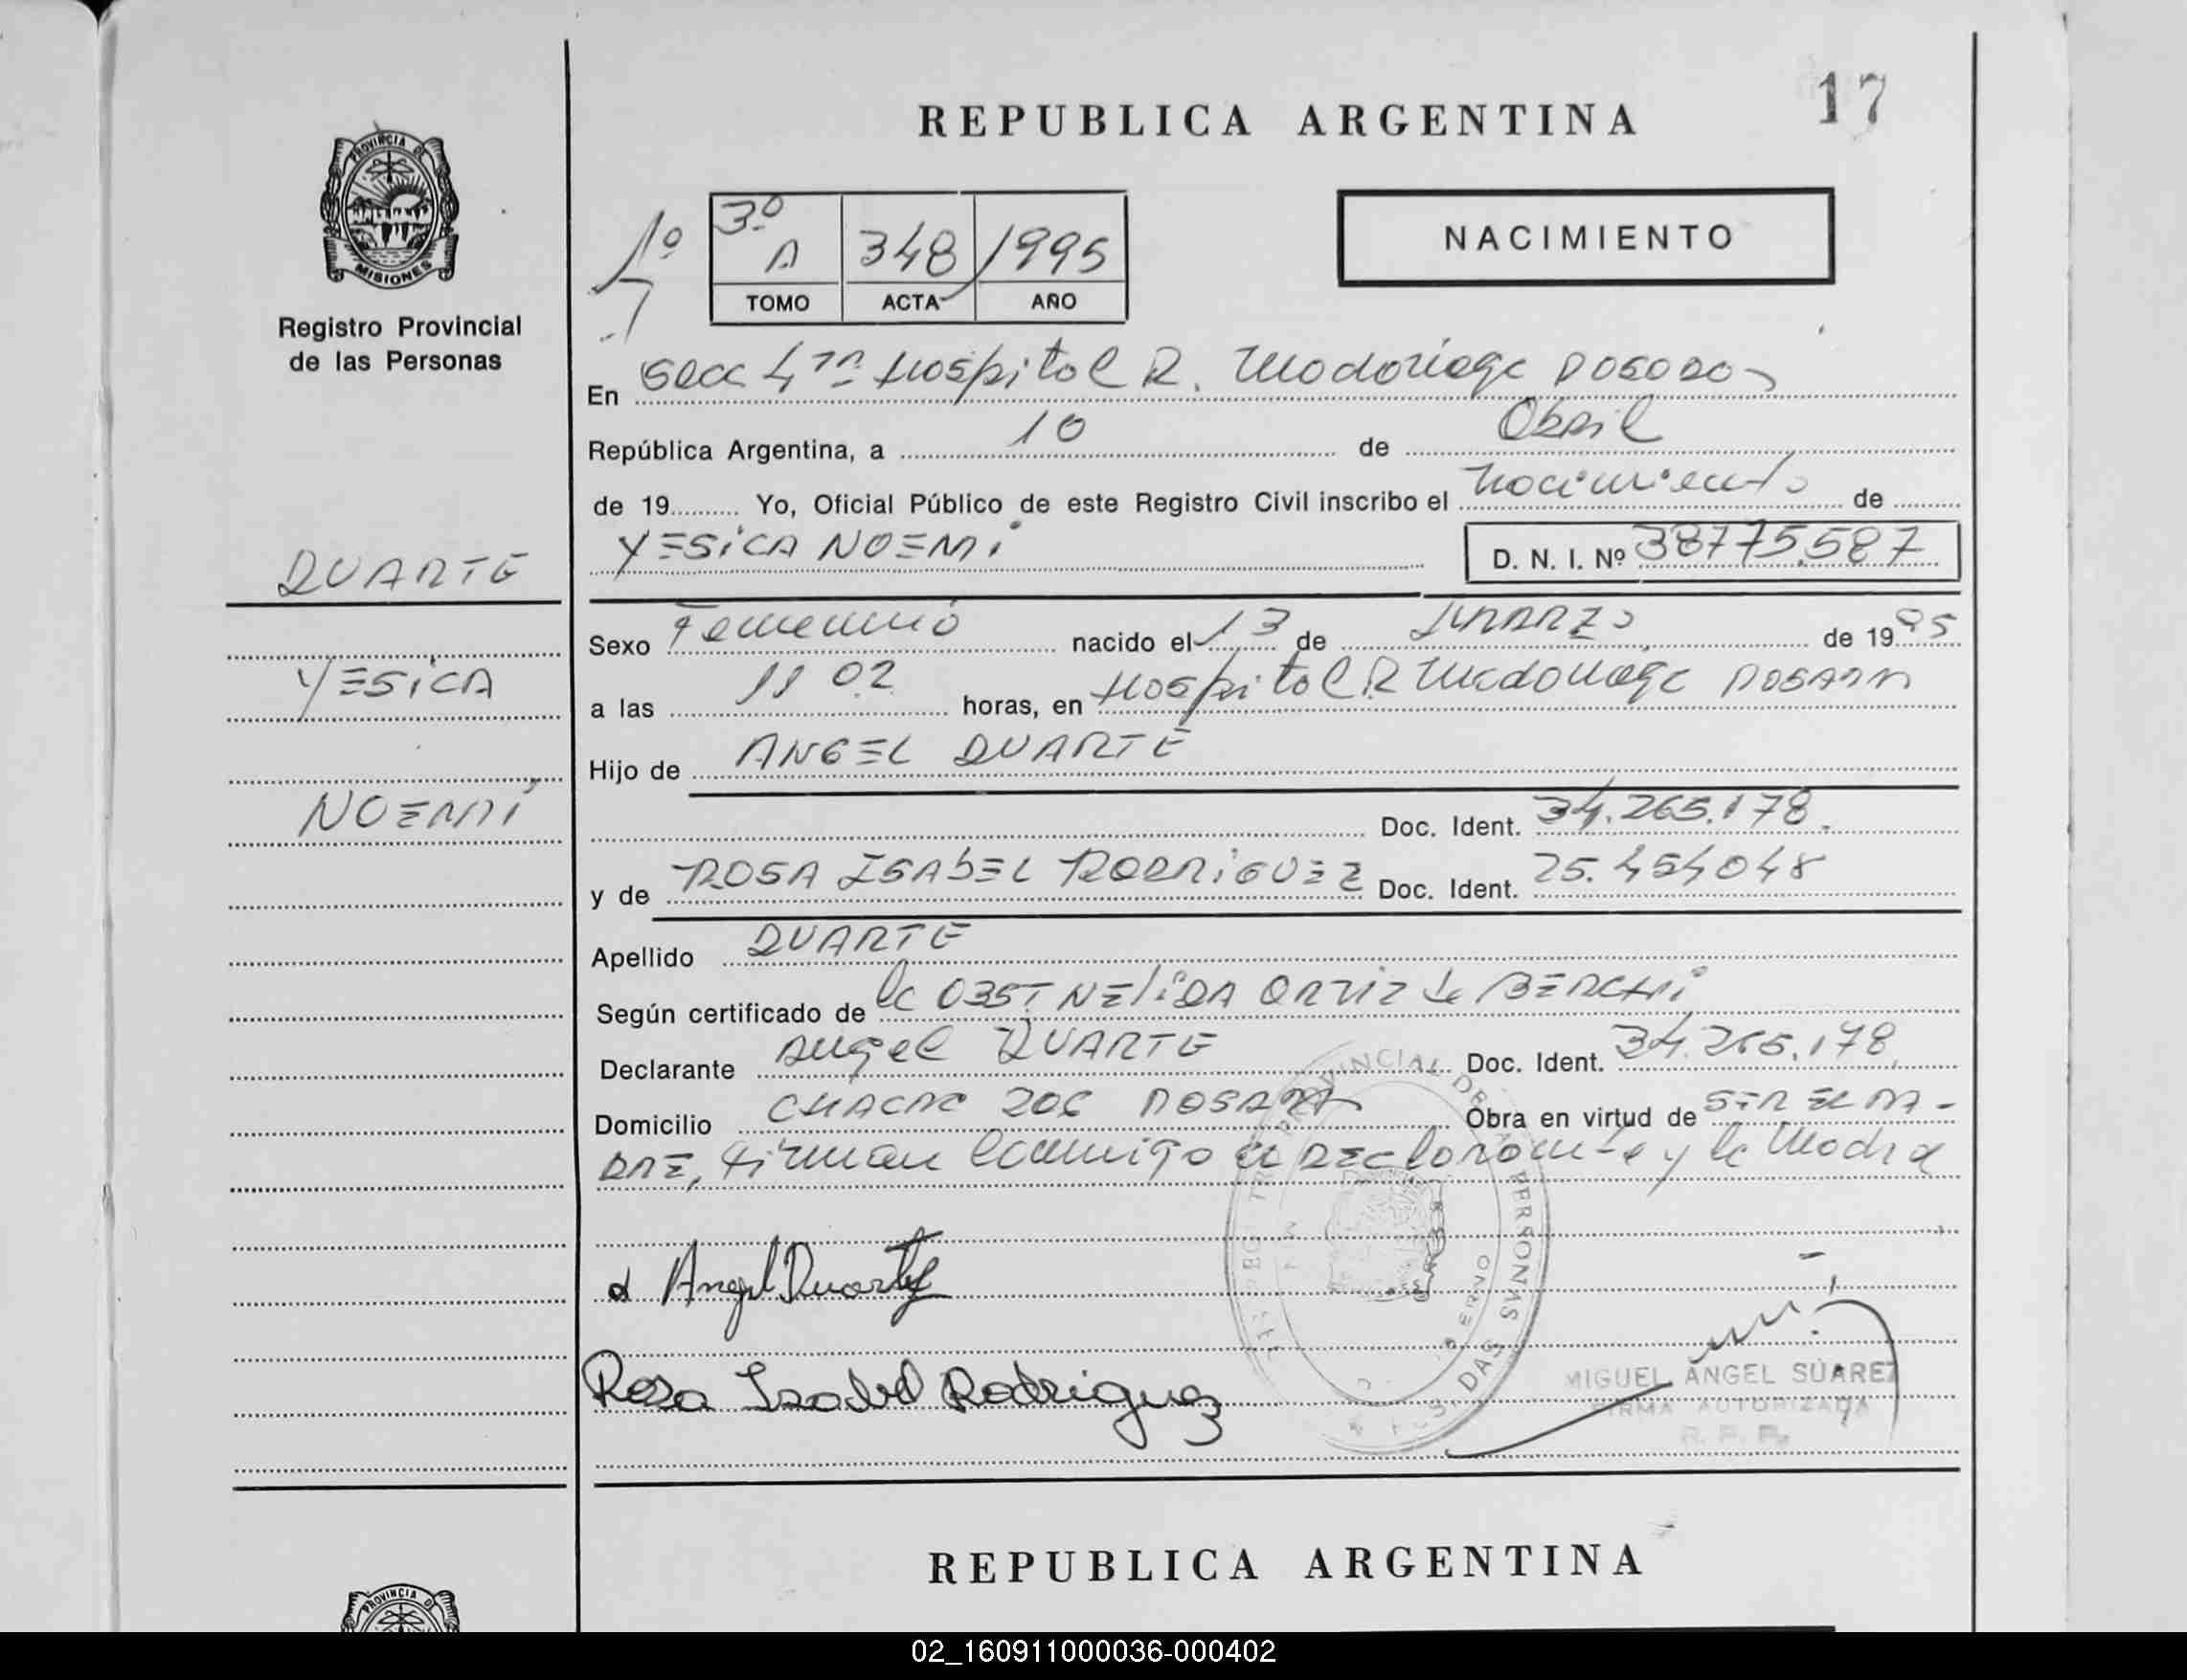 17
REPUBLICA ARGENTINA
PROVINCIA DE
MISIONES
Registro Provincial
de las Personas
NACIMIENTO
1º
3º
A 348 1995
TOMO ACTA AÑO
En Secc 4ta Hospital R. Madariaga Posadas
República Argentina, a 10 de Abril
de 19 Yo, Oficial Público de este Registro Civil inscribo el nacimiento de
YESICA NOEMI D. N. I. Nº 38775.587
DUARTE
YESICA
NOEMI
Sexo Femenino nacido el 13 de MARZO de 1995
a las 11 02 horas, en Hospital R Madariaga POSADAS
Hijo de ANGEL DUARTE
Doc. Ident. 34.265.178.
y de ROSA ISABEL RODRIGUEZ Doc. Ident. 25.454048
Apellido DUARTE
Según certificado de la OBST NELIDA ORTIZ de BERCHI
Declarante Angel DUARTE Doc. Ident. 34.265.178.
Domicilio CHACRA 206 POSADAS Obra en virtud de SER EL PA-
DRE, firman conmigo el DEClarante y la Madre
Angel Duarte
Rosa Isabel Rodriguez
REGISTRO PROVINCIAL DE LAS PERSONAS
MIGUEL ANGEL SUAREZ
FIRMA AUTORIZADA
R. P. P.
REPUBLICA ARGENTINA
PROVINCIA DE
02_160911000036-000402